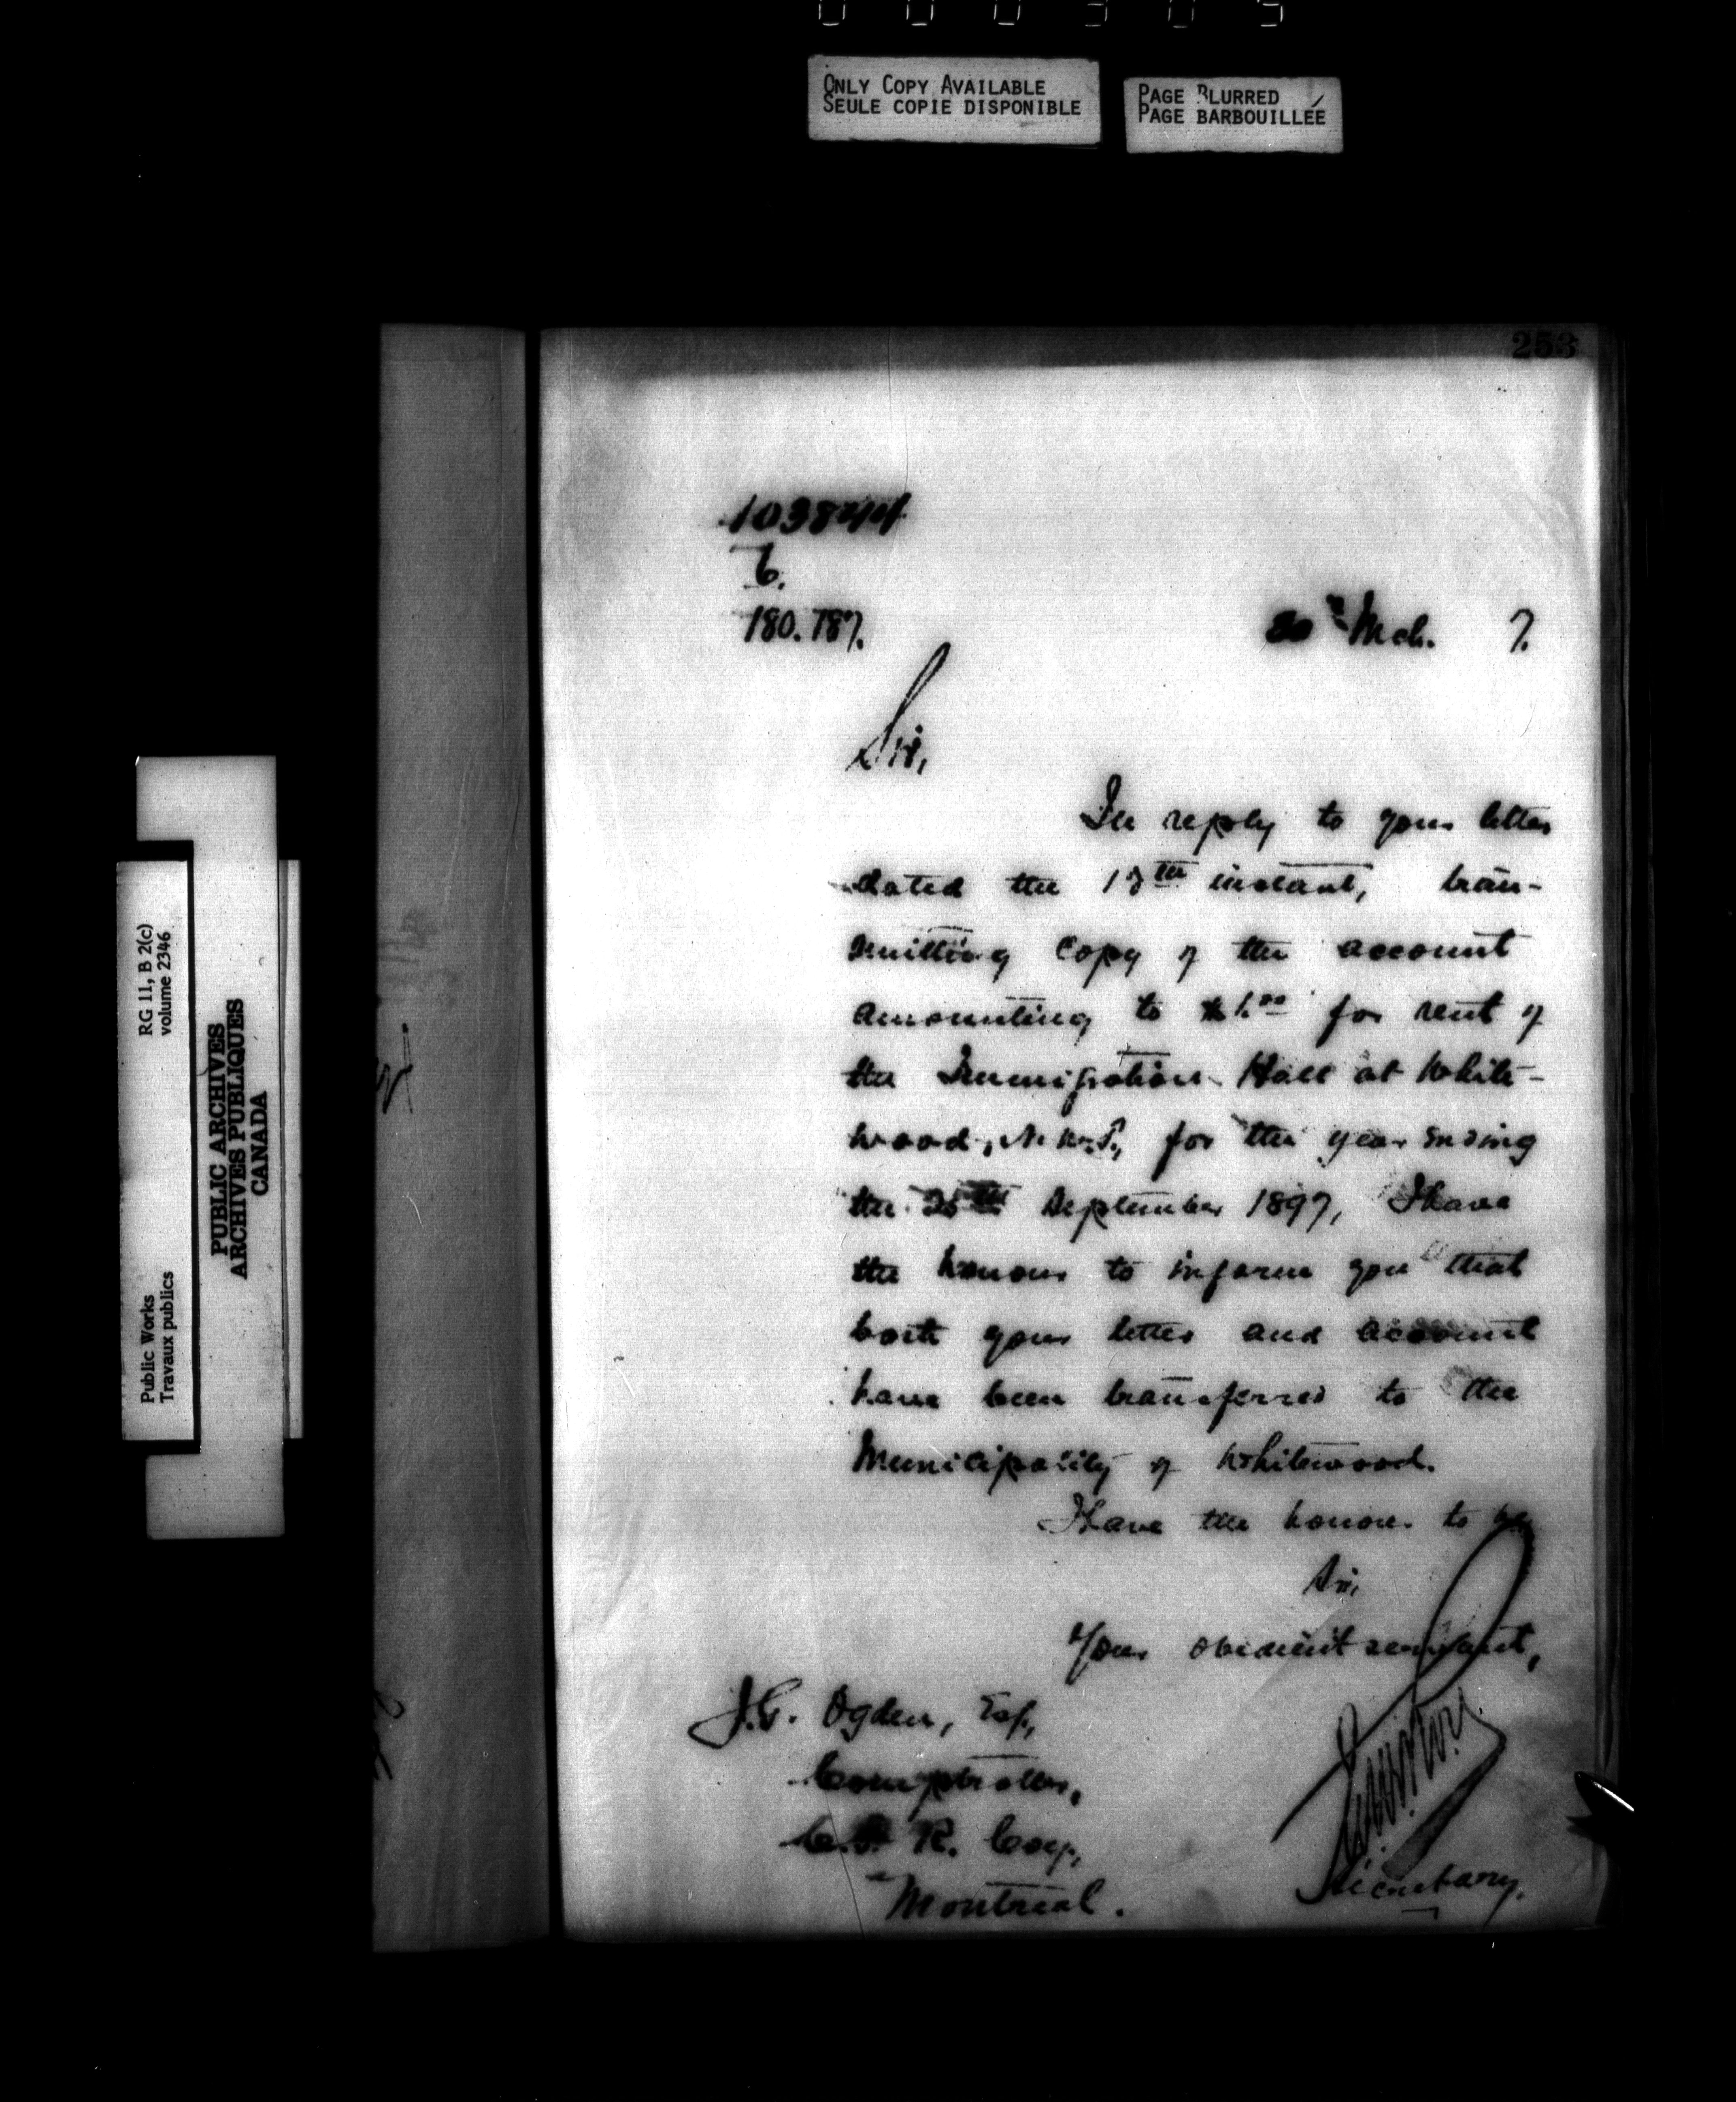 ONLY COPY AVAILABLE
SEULE COPIE DISPONIBLE
PAGE BLURRED
PAGE BARBOUILLÉE
253
RG 11, B 2(c)
volume 2346
PUBLIC ARCHIVES
ARCHIVES PUBLIQUES
CANADA
Public Works
Travaux publics
180.787.
Mch. 7.
Sir,
In reply to your letter
dated the instant, tran-
smitting copy of the account
amounting to $1.00 for rent of
the Immigration Hall at White-
wood, N.W.T., for the year ending
the September 1897, I have
the honour to inform you that
both your letter and account
have been transferred to the
Municipality of Whitewood.
I have the honour to be
Sir,
Your obedient servant,
Secretary.
J.G. Ogden, Esq.,
Comptroller,
C.P.R. Coy.,
Montreal.